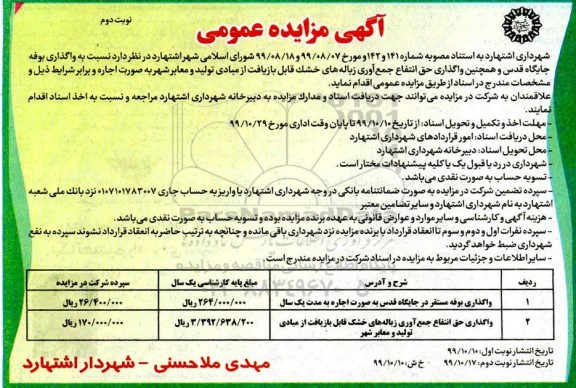 نوبت دوم
آگهی مزایده عمومی
شهرداری اشتهارد به استناد مصوبه شماره ۱۴۱ و ۱۴۲ مورخ ۹۹/۰۸/۰۷ و ۹۹/۰۸/۱۸ شورای اسلامی شهر اشتهارد در نظر دارد نسبت به واگذاری بوفه
جایگاه قدس و همچنین واگذاری حق انتفاع جمع‌آوری زباله‌های خشک قابل بازیافت از مبادی تولید و معابر شهر به صورت اجاره و برابر شرایط ذیل و
مشخصات مندرج در اسناد از طریق مزایده عمومی اقدام نماید.
علاقمندان به شرکت در مزایده می توانند جهت دریافت اسناد و مدارک مزایده به دبیرخانه شهرداری اشتهارد مراجعه و نسبت به اخذ اسناد اقدام
نمایند.
- مهلت اخذ و تکمیل و تحویل اسناد: از تاریخ ۹۹/۱۰/۱۰ تا پایان وقت اداری مورخ ۹۹/۱۰/۲۹
- محل دریافت اسناد: امور قراردادهای شهرداری اشتهارد
- محل تحویل اسناد: دبیرخانه شهرداری اشتهارد
- شهرداری در رد یا قبول یک یا کلیه پیشنهادات مختار است.
- تسویه حساب به صورت نقدی می‌باشد.
- سپرده تضمین شرکت در مزایده به صورت ضمانتنامه بانکی در وجه شهرداری اشتهارد یا واریز به حساب جاری ۰۱۰۷۱۰۱۷۸۳۰۰۷ نزد بانک ملی شعبه
اشتهارد به نام شهرداری اشتهارد و سایر تضامین معتبر
- هزینه آگهی و کارشناسی و سایر موارد و عوارض قانونی به عهده برنده مزایده بوده و تسویه حساب به صورت نقدی می‌باشد.
- سپرده نفرات اول و دوم و سوم تا انعقاد قرارداد با برنده مزایده نزد شهرداری باقی مانده و چنانچه به ترتیب حاضر به انعقاد قرارداد نشوند سپرده به نفع
شهرداری ضبط خواهد گردید.
- سایر اطلاعات و جزئیات مربوط به مزایده در اسناد شرکت در مزایده مندرج است.
ردیف شرح و آدرس مبلغ پایه کارشناسی یک سال سپرده شرکت در مزایده
۱ واگذاری بوفه مستقر در جایگاه قدس به صورت اجاره به مدت یک سال ۲۶۴/۰۰۰/۰۰۰ ریال ۲۶/۴۰۰/۰۰۰ ریال
۲ واگذاری حق انتفاع جمع‌آوری زباله‌های خشک قابل بازیافت از مبادی تولید و معابر شهر ۳/۳۹۲/۶۳۸/۲۰۰ ریال ۱۷۰/۰۰۰/۰۰۰ ریال
تاریخ انتشار نوبت اول: ۹۹/۱۰/۱۰
تاریخ انتشار نوبت دوم: ۹۹/۱۰/۱۷ خ ش: ۹۹/۱۰/۱۰
مهدی ملاحسنی - شهردار اشتهارد